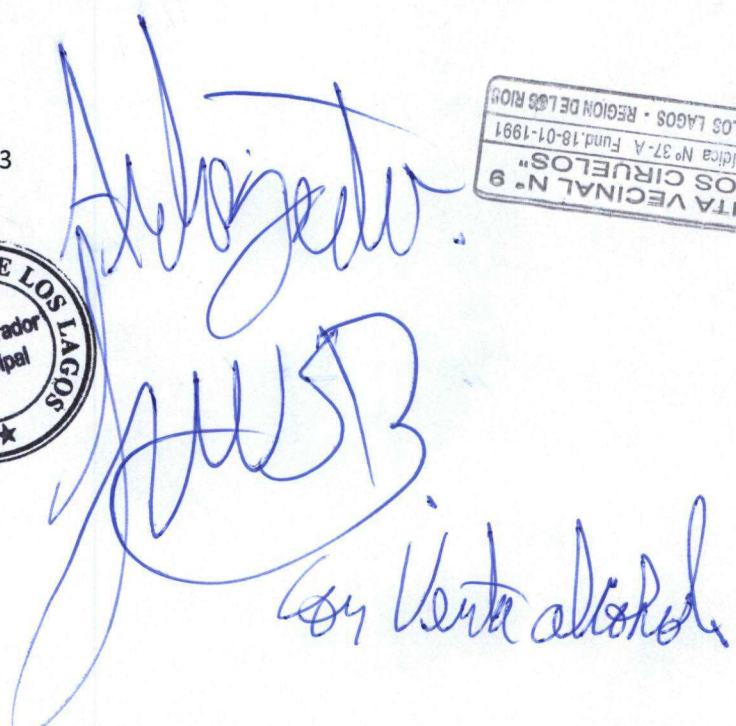 3
E LOS LAGOS
ador
ipal
ITA VECINAL N° 9
OS CIRUELOS"
ídica N° 37-A Fund.18-01-1991
LOS LAGOS - REGION DE LOS RIOS
Autorizado.
Con Venta alcohol